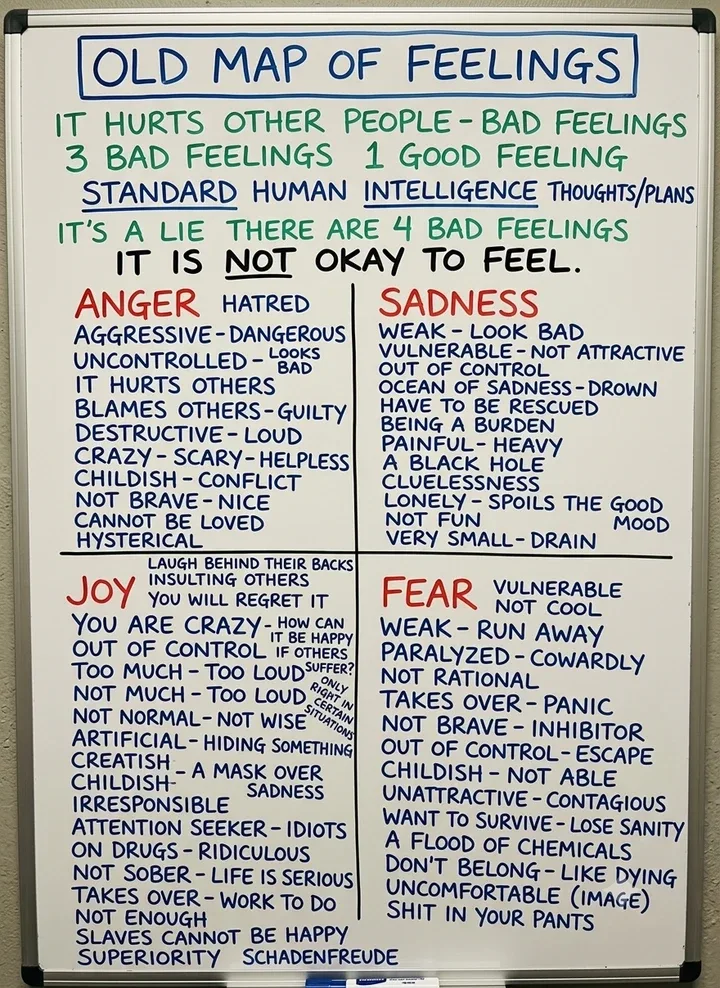 OLD MAP OF FEELINGS
IT HURTS OTHER PEOPLE - BAD FEELINGS
3 BAD FEELINGS 1 GOOD FEELING
STANDARD HUMAN INTELLIGENCE THOUGHTS/PLANS
IT'S A LIE THERE ARE 4 BAD FEELINGS
IT IS NOT OKAY TO FEEL.
ANGER HATRED
AGGRESSIVE - DANGEROUS
UNCONTROLLED - LOOKS
BAD
IT HURTS OTHERS
BLAMES OTHERS - GUILTY
DESTRUCTIVE - LOUD
CRAZY - SCARY - HELPLESS
CHILDISH - CONFLICT
NOT BRAVE - NICE
CANNOT BE LOVED
HYSTERICAL
SADNESS
WEAK - LOOK BAD
VULNERABLE - NOT ATTRACTIVE
OUT OF CONTROL
OCEAN OF SADNESS - DROWN
HAVE TO BE RESCUED
BEING A BURDEN
PAINFUL - HEAVY
A BLACK HOLE
CLUELESSNESS
LONELY - SPOILS THE GOOD
MOOD
NOT FUN
VERY SMALL - DRAIN
JOY
LAUGH BEHIND THEIR BACKS
INSULTING OTHERS
YOU WILL REGRET IT
YOU ARE CRAZY - HOW CAN
IT BE HAPPY
IF OTHERS
SUFFER?
OUT OF CONTROL
TOO MUCH - TOO LOUD
NOT MUCH - TOO LOUD
ONLY
RIGHT IN
CERTAIN
SITUATIONS
NOT NORMAL - NOT WISE
ARTIFICIAL - HIDING SOMETHING
CREATISH
CHILDISH - A MASK OVER
SADNESS
IRRESPONSIBLE
ATTENTION SEEKER - IDIOTS
ON DRUGS - RIDICULOUS
NOT SOBER - LIFE IS SERIOUS
TAKES OVER - WORK TO DO
NOT ENOUGH
SLAVES CANNOT BE HAPPY
SUPERIORITY SCHADENFREUDE
FEAR VULNERABLE
NOT COOL
WEAK - RUN AWAY
PARALYZED - COWARDLY
NOT RATIONAL
TAKES OVER - PANIC
NOT BRAVE - INHIBITOR
OUT OF CONTROL - ESCAPE
CHILDISH - NOT ABLE
UNATTRACTIVE - CONTAGIOUS
WANT TO SURVIVE - LOSE SANITY
A FLOOD OF CHEMICALS
DON'T BELONG - LIKE DYING
UNCOMFORTABLE (IMAGE)
SHIT IN YOUR PANTS